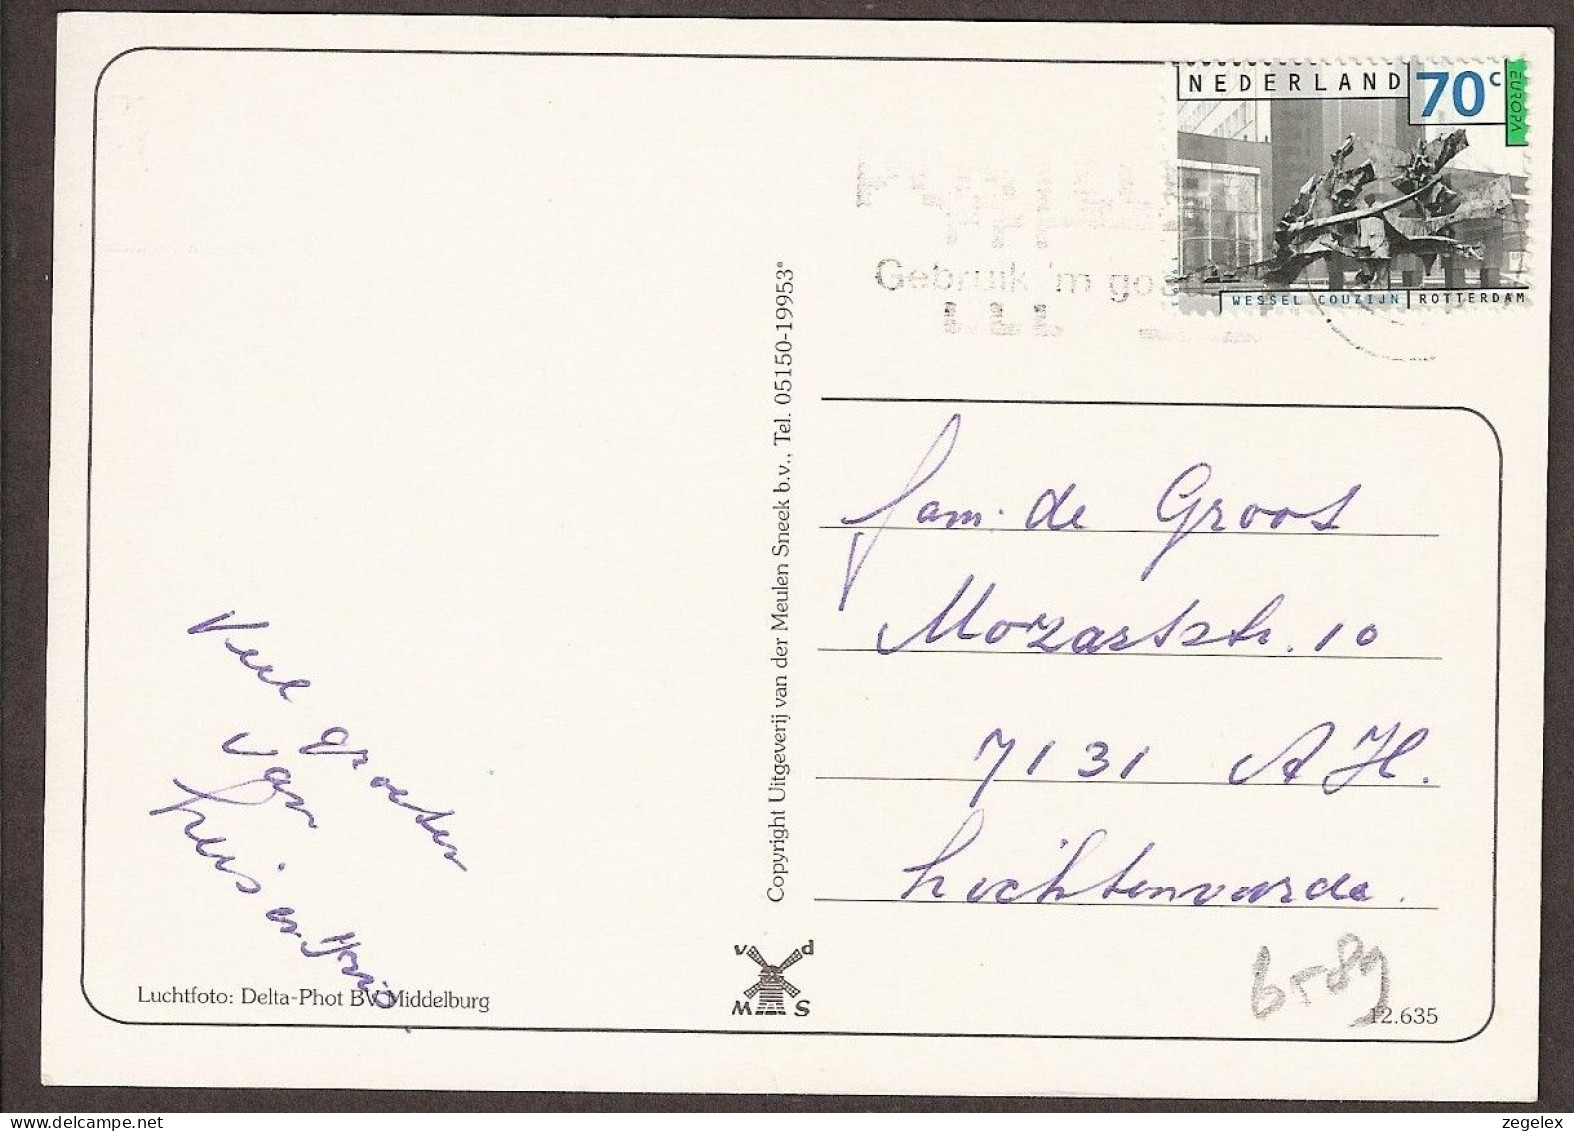 NEDERLAND 70c EUROPA
WESSEL COUZIJN ROTTERDAM
Gebruik 'm goed
Fam. de Groot
Mozartstr. 10
7131 AH.
Lichtenvoorde.
Veel groeten
van
en
Copyright Uitgeverij van der Meulen Sneek b.v., Tel. 05150-19953*
Luchtfoto: Delta-Phot BV Middelburg
v d
M S
12.635
zegelex